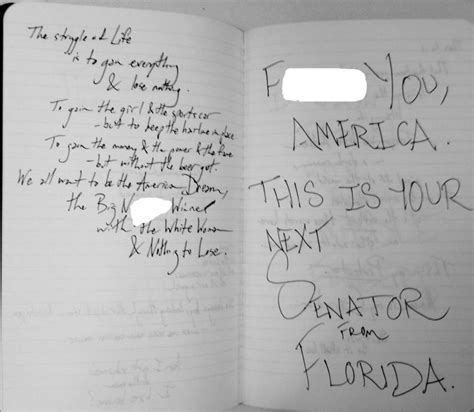 The struggle of Life
is to gain everything
& lose nothing.
To gain the girl & the sports car
- but to keep the hairline in place
To gain the money & the power & the fame
- but without the beer gut.
We all want to be the American Dream,
the Big N Winner
with the White Woman
& Nothing to Lose.
F YOU,
AMERICA.
THIS IS YOUR
NEXT
SENATOR
FROM
FLORIDA.